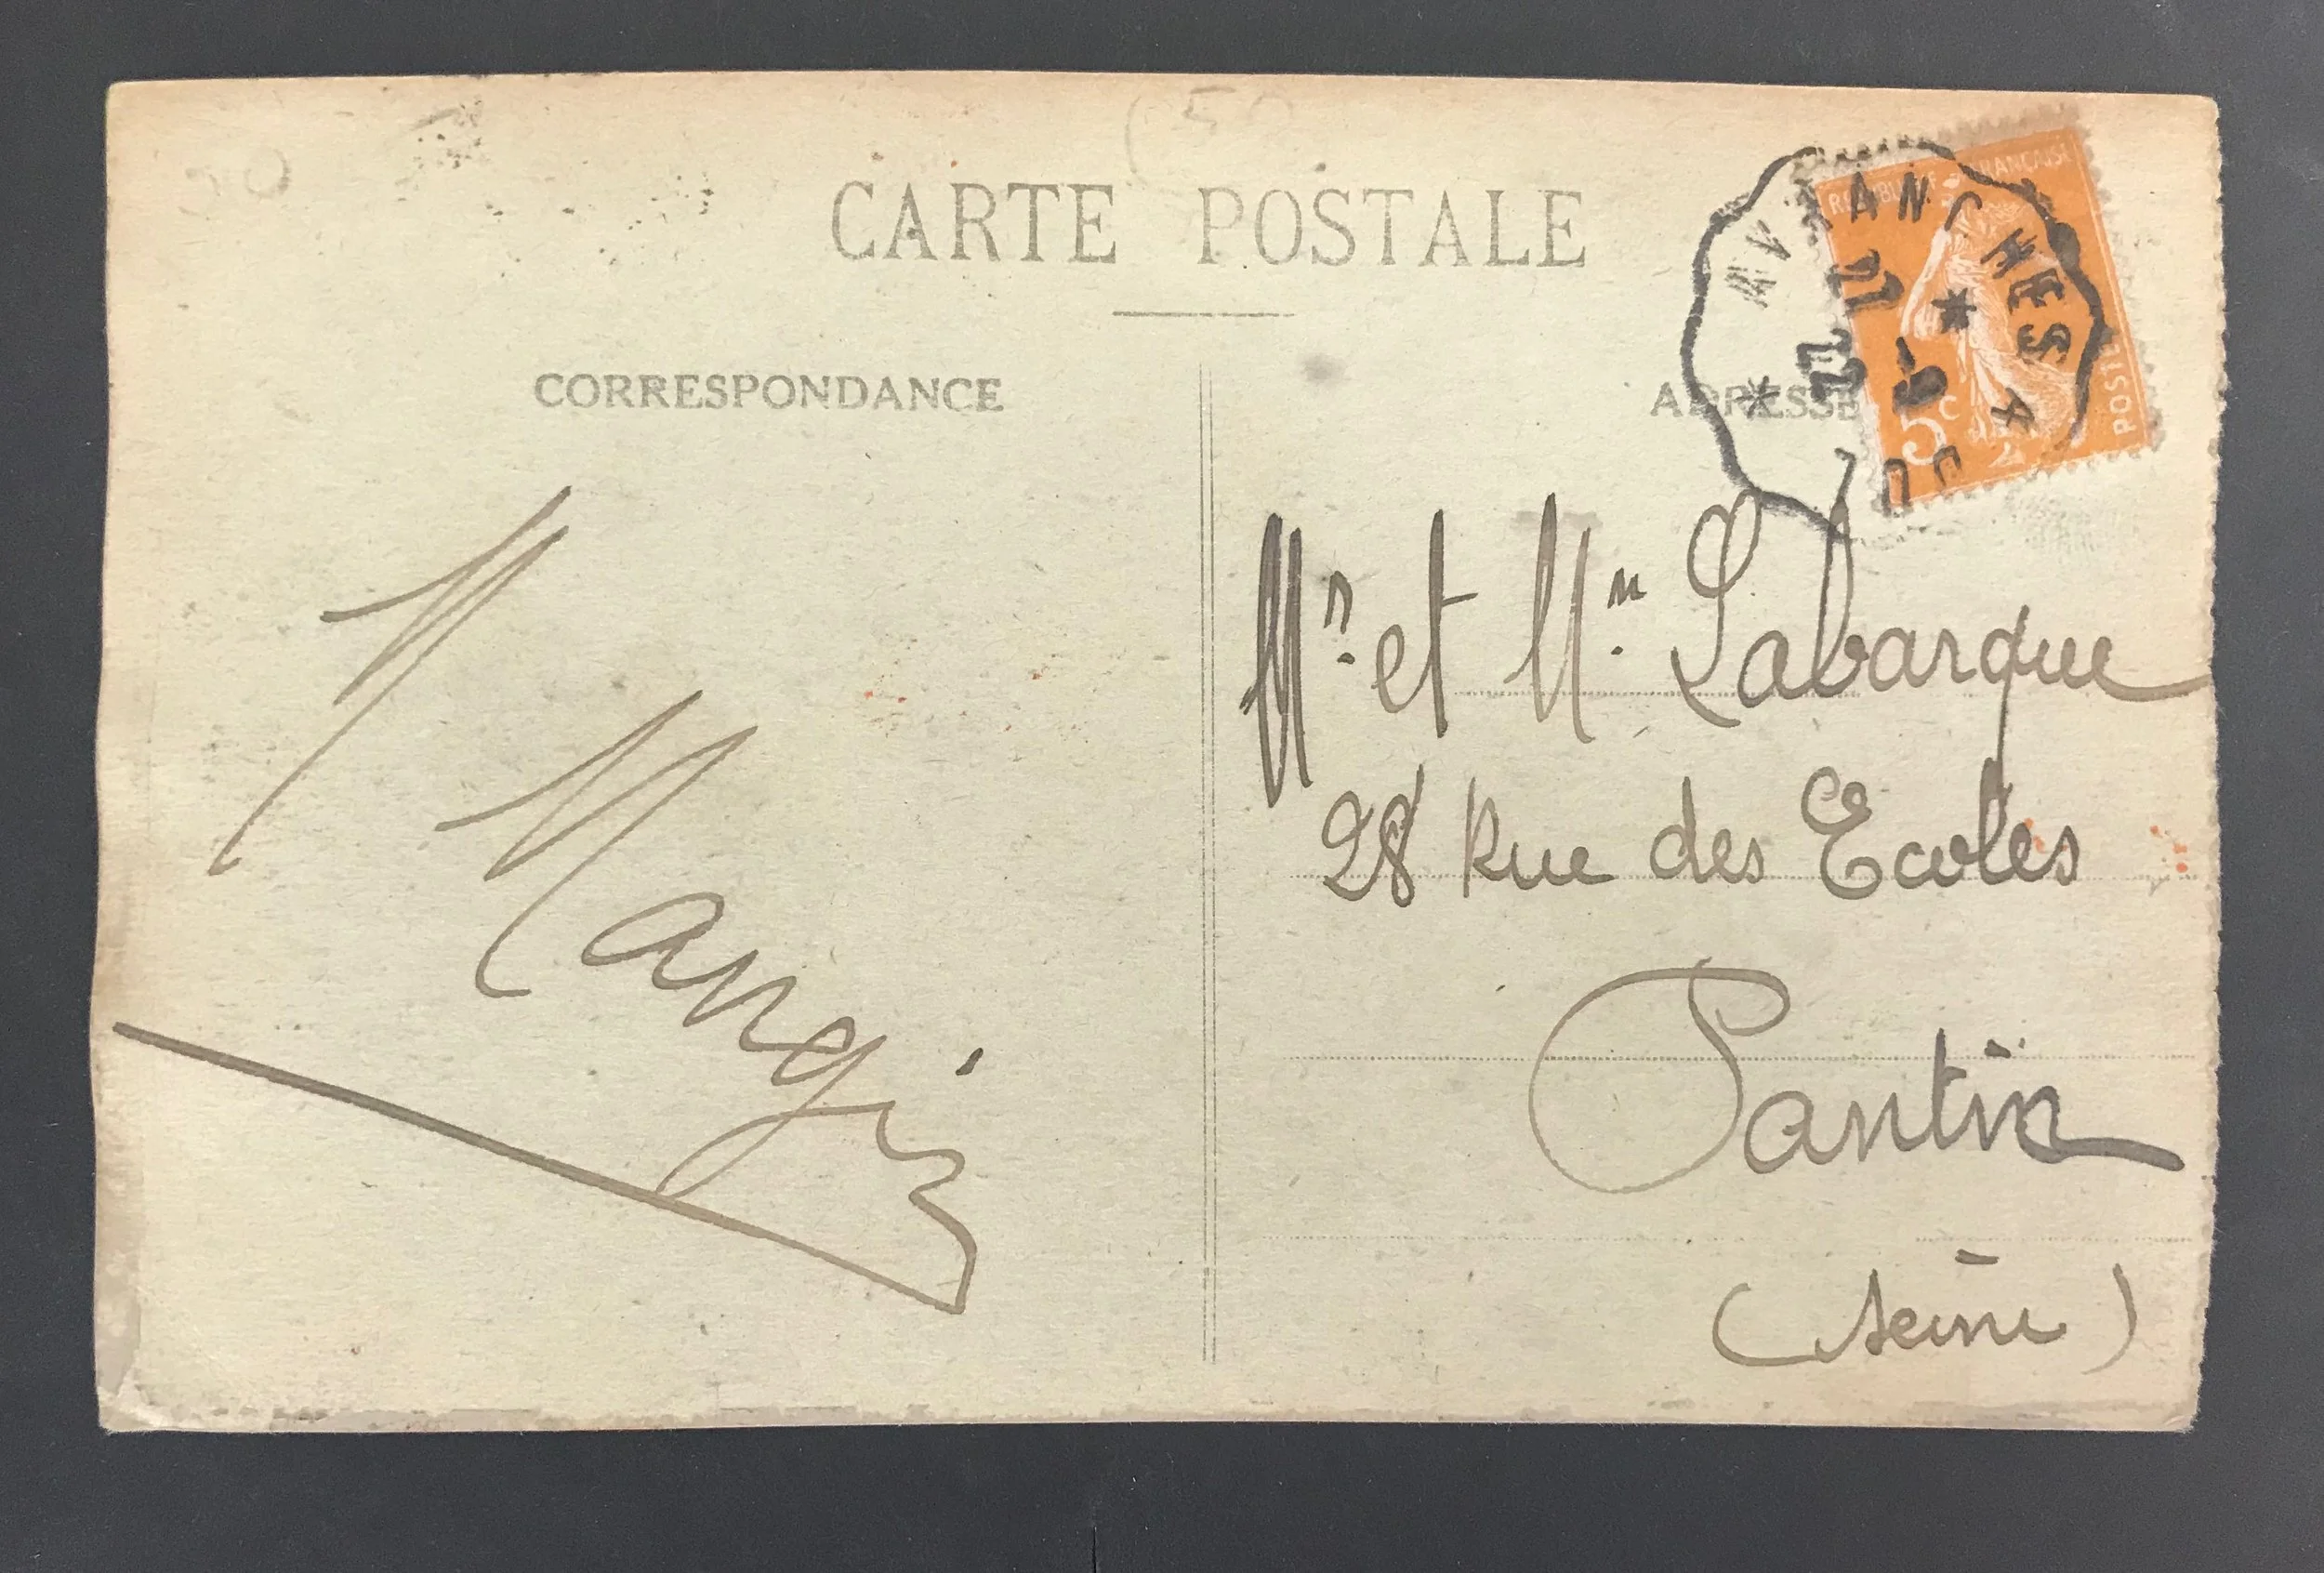 CARTE POSTALE
CORRESPONDANCE
ADRESSE
RÉPUBLIQUE FRANÇAISE
5c
POSTES
AVRANCHES A
22
-9
22
Mr. et Mme. Labarque
28 Rue des Ecoles
Pantin
(Seine)
M Mangin